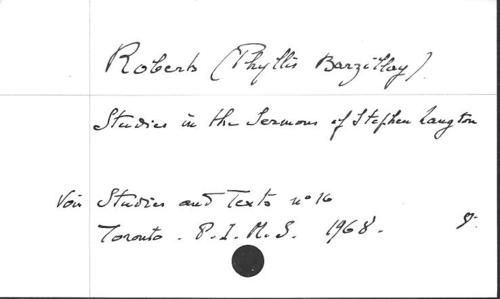 Roberts (Phyllis Barzillay)
Studies in the Sermons of Stephen Langton
Voir Studies and Texts n° 16
Toronto. P.I.M.S. 1968.